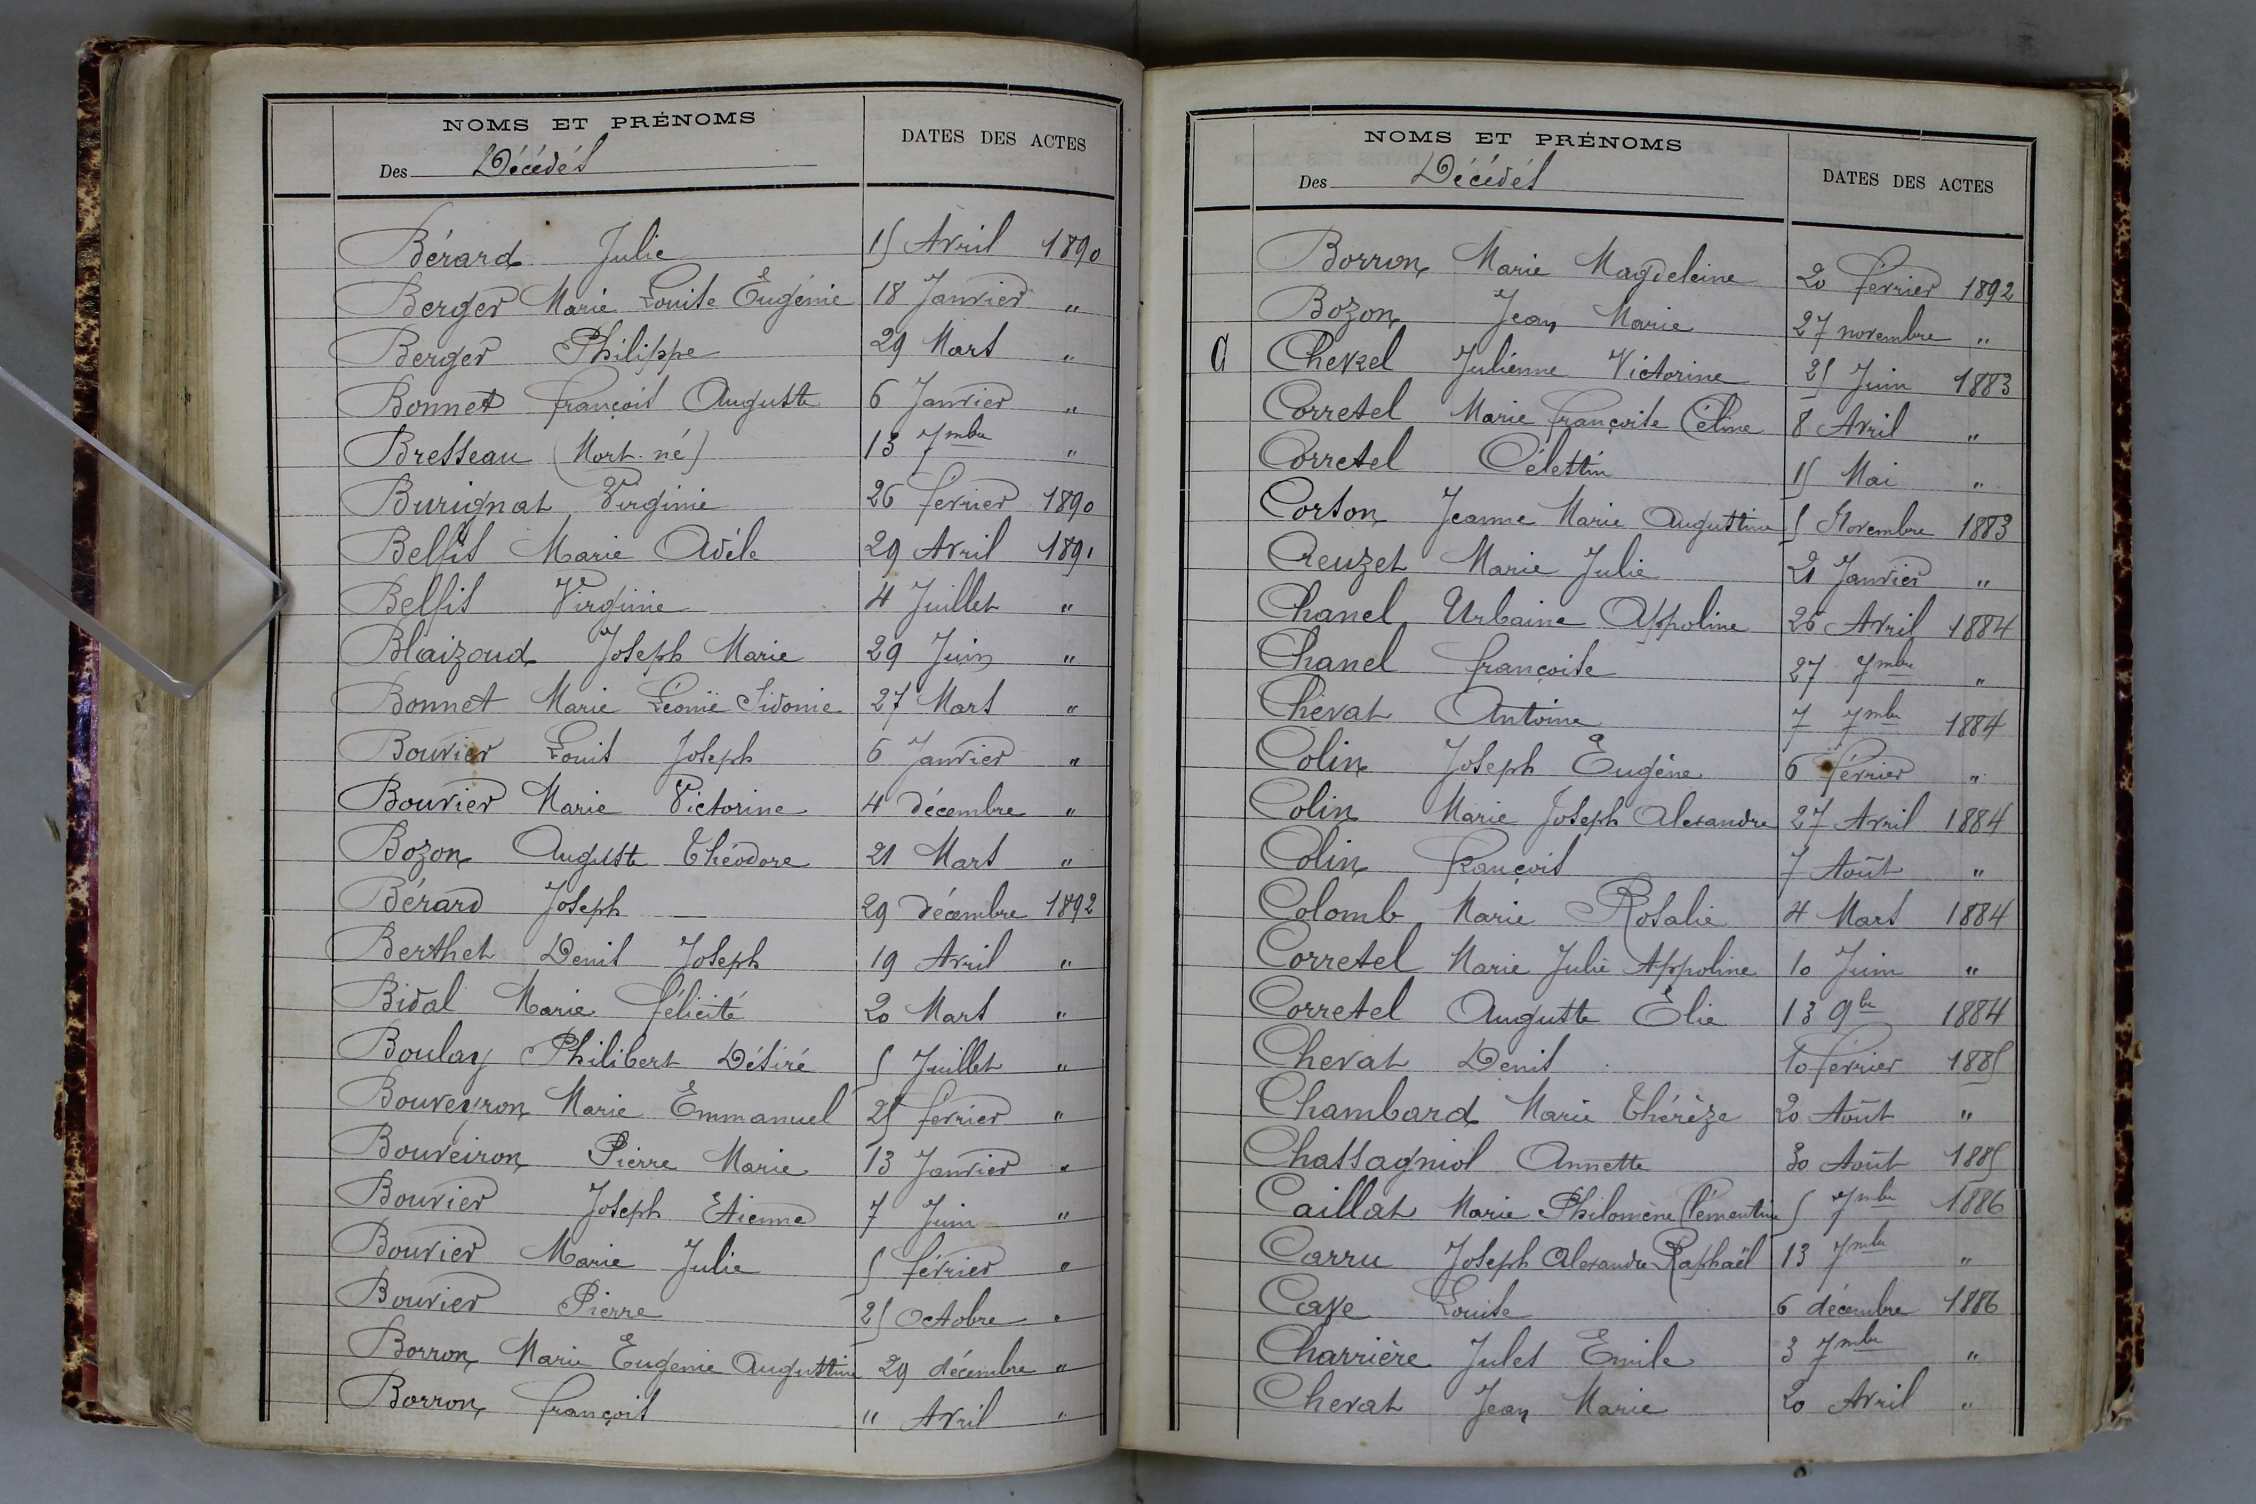 NOMS ET PRÉNOMS
Des Décédés
DATES DES ACTES
Bérard Julie 15 Avril 1890
Berger Marie Louise Eugénie 18 Janvier "
Berger Philippe 29 Mars "
Bonnet françois Auguste 6 Janvier "
Bresseau (Mort-né) 13 7mbre "
Burignat Virginie 26 février 1890
Belfis Marie Adèle 29 Avril 1891
Belfis Virginie 4 Juillet "
Blaizoud Joseph Marie 29 Juin "
Bonnet Marie Léonie Sidonie 27 Mars "
Bouvier Louis Joseph 6 Janvier "
Bouvier Marie Victorine 4 décembre "
Bozon Auguste Théodore 21 Mars "
Bérard Joseph — 29 décembre 1892
Berthet Denis Joseph 19 Avril "
Bidal Marie félicité 20 Mars "
Boulay Philibert Désiré 5 Juillet "
Bouveyron Marie Emmanuel 25 février "
Bouveiron Pierre Marie 13 Janvier "
Bouvier Joseph Etienne 7 Juin "
Bouvier Marie Julie 5 février "
Bouvier Pierre 25 Octobre "
Borron Marie Eugenie Augustine 29 décembre "
Borron françois " Avril "
NOMS ET PRÉNOMS
Des Décédés
DATES DES ACTES
Borron Marie Magdeleine 20 février 1892
Bozon Jean Marie 27 novembre "
C Chevrel Julienne Victorine 25 Juin 1883
Corretel Marie françoise Céline 8 Avril "
Corretel Célestin 15 Mai "
Corton Jeanne Marie Augustine 5 Novembre 1883
Creuzet Marie Julie 21 Janvier "
Chanel Urbaine Appoline 26 Avril 1884
Chanel françoise 27 7mbre "
Chevat Antoine 7 7mbre 1884
Colin Joseph Eugène 6 février "
Colin Marie Joseph Alexandre 27 Avril 1884
Colin françois 7 Août "
Colomb Marie Rosalie 4 Mars 1884
Corretel Marie Julie Appoline 10 Juin "
Corretel Auguste Elie 13 9bre 1884
Chevat Denis 10 février 1885
Chambard Marie Thérèze 20 Août "
Chassagniol Annette 30 Août 1885
Caillat Marie Philomène Clémentine 5 7mbre 1886
Carru Joseph Alexandre Raphaël 13 7mbre "
Cave Louise 6 décembre 1886
Charrière Jules Emile 3 7mbre "
Chevat Jean Marie 20 Avril "